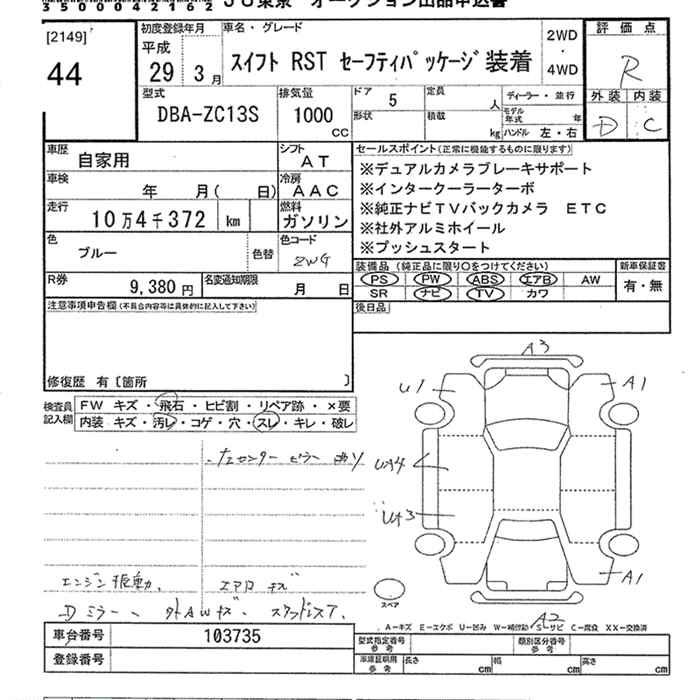 35000042102 JU東京 オークション出品申込書
[2149]
44
初度登録年月
平成
29年 3月
車名・グレード
スイフト RST セーフティパッケージ装着
2WD
・
4WD
評価点
R
外装 内装
D C
型式
DBA-ZC13S
排気量
1000
CC
ドア 5
形状
定員 人
積載 kg
ディーラー・並行
モデル年式 年
ハンドル 左・右
車歴 自家用
シフト AT
車検 年 月( 日)
冷房 AAC
走行 10万4千372 km
燃料 ガソリン
色 ブルー
色替
色コード ZWG
R券 9,380円
名変通知期限 月 日
セールスポイント(正常に機能するものに限ります)
※デュアルカメラブレーキサポート
※インタークーラーターボ
※純正ナビTVバックカメラ ETC
※社外アルミホイール
※プッシュスタート
装備品(純正品に限り〇をつけてください)
PS PW ABS エアB AW
SR ナビ TV カワ
新車保証書
有・無
後日品
注意事項申告欄(不具合内容等は具体的に記入して下さい)
修復歴 有〔箇所 〕
検査員記入欄
FW キズ・飛石・ヒビ割・リペア跡・×要
内装 キズ・汚レ・コゲ・穴・スレ・キレ・破レ
センターピラー
エンジン振動、 エアロキズ
Dミラー、外AWキズ、
A3
U1
A1
A1
A2
スペア
A-キズ E-エクボ U-凹み W-補修跡 S-サビ C-腐食 XX-交換済
車台番号 103735
登録番号
型式指定番号 参考
類別区分番号 参考
車庫証明用 参考
長さ cm
幅 cm
高さ cm